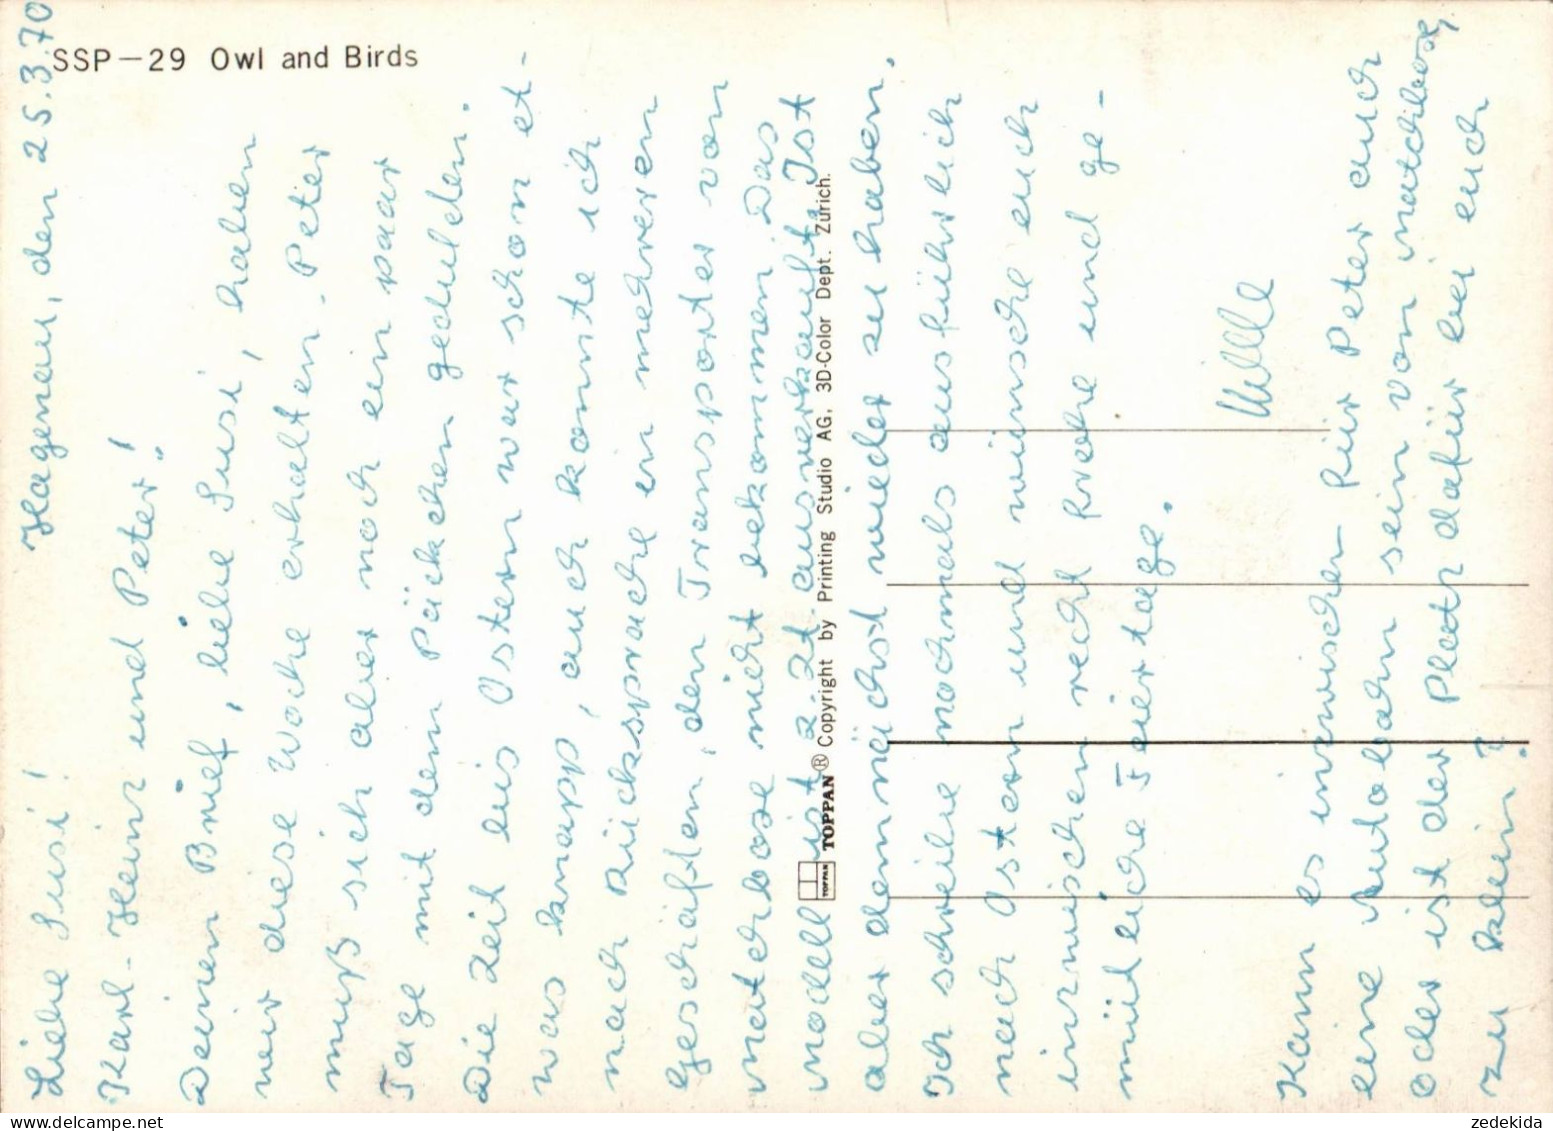 SSP-29 Owl and Birds
Hagenau, den 25.3.70
Liebe Susi!
Karl-Heinz und Peter!
Deinen Brief, liebe Susi, haben
wir diese Woche erhalten. Peter
muß sich aber noch ein paar
Tage mit dem Päckchen gedulden.
Die Zeit bis Ostern war schon et-
was knapp, auch konnte ich
nach Rücksprache in mehreren
Geschäften, den Transporter von
matchbox nicht bekommen. Das
Modell ist z. Zt. ausverkauft. Ist
aber demnächst wieder zu haben.
Ich schreibe nochmals ausführlich
nach Ostern und wünsche euch
inzwischen recht frohe und ge-
mütliche Feiertage.
Kann es inzwischen für Peter auch
eine Autobahn sein von matchbox,
oder ist der Platz dafür bei euch
zu klein?
TOPPAN
TOPPAN® Copyright by Printing Studio AG, 3D-Color Dept. Zürich.
delcampe.net
zedekida